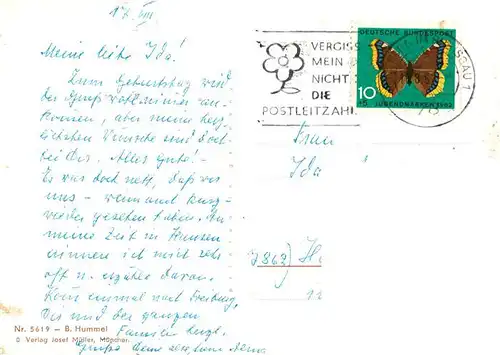 17. VIII.
Meine liebe Ida!
Zum Geburtstag wird
der Gruß wohl nimmer an-
kommen, aber meine herz-
lichsten Wünsche sind doch
bei Dir. Alles Gute! –
Es war doch nett, daß wir
uns – wenn auch kurz –
wieder gesehen haben. An
meine Zeit in Hausen
erinnere ich mich sehr
oft u. erzähle davon.
Komm einmal nach Freiburg,
Dir und der ganzen
Familie herzl.
Grüße
Nr. 5619 – B. Hummel
© Verlag Josef Müller, München
VERGISS
MEIN
NICHT
DIE
POSTLEITZAHL
DEUTSCHE BUNDESPOST
10
JUGENDMARKE 1962
Frau
Ida
7863) H